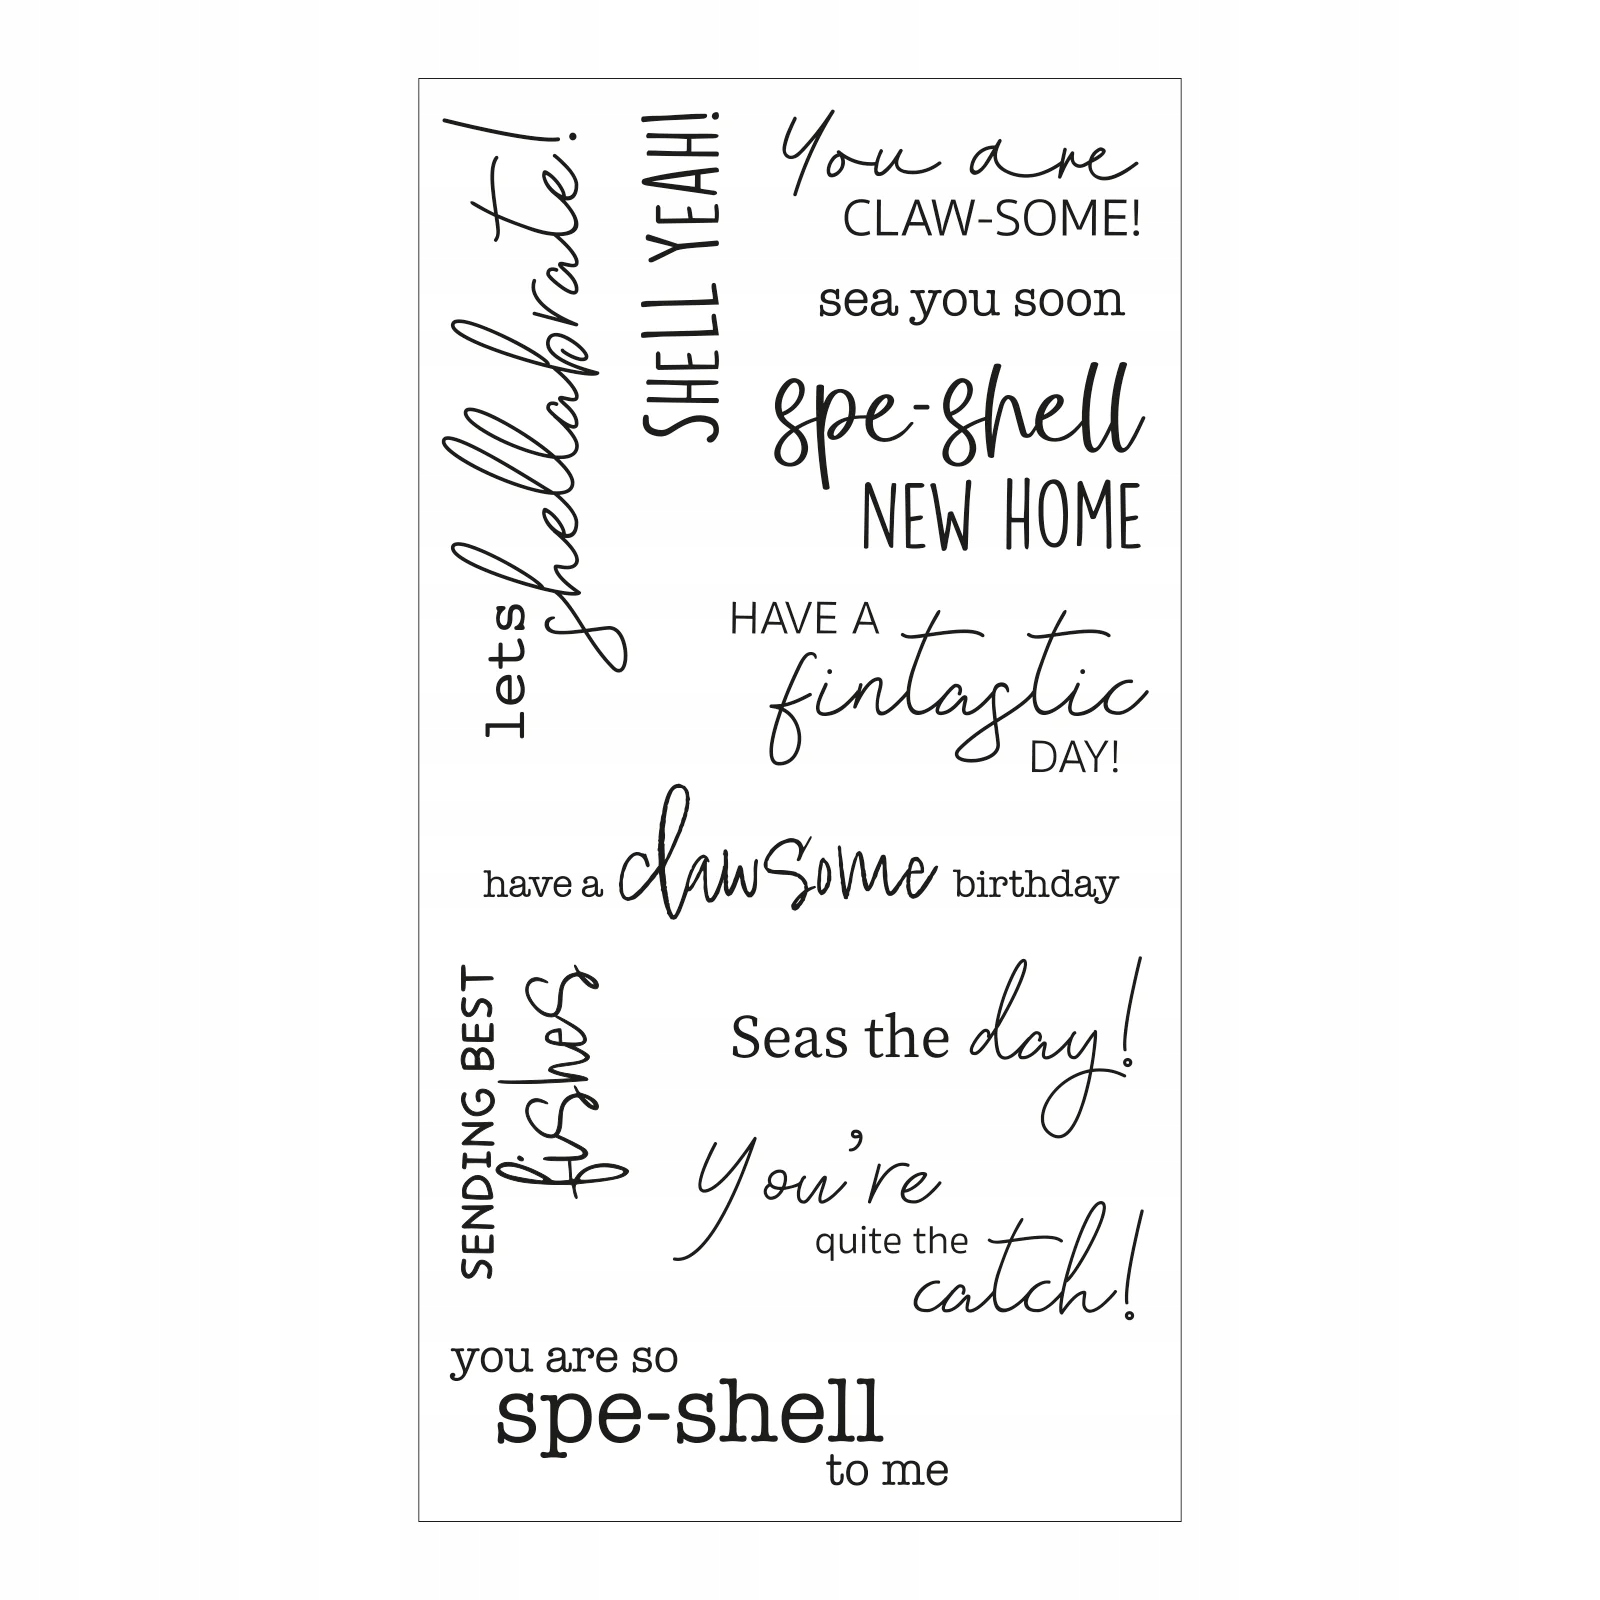 lets shellabrate!
SHELL YEAH!
You are
CLAW-SOME!
sea you soon
spe-shell
NEW HOME
HAVE A
fintastic
DAY!
have a clawsome birthday
SENDING BEST
fishes
Seas the day!
You're
quite the
catch!
you are so
spe-shell
to me